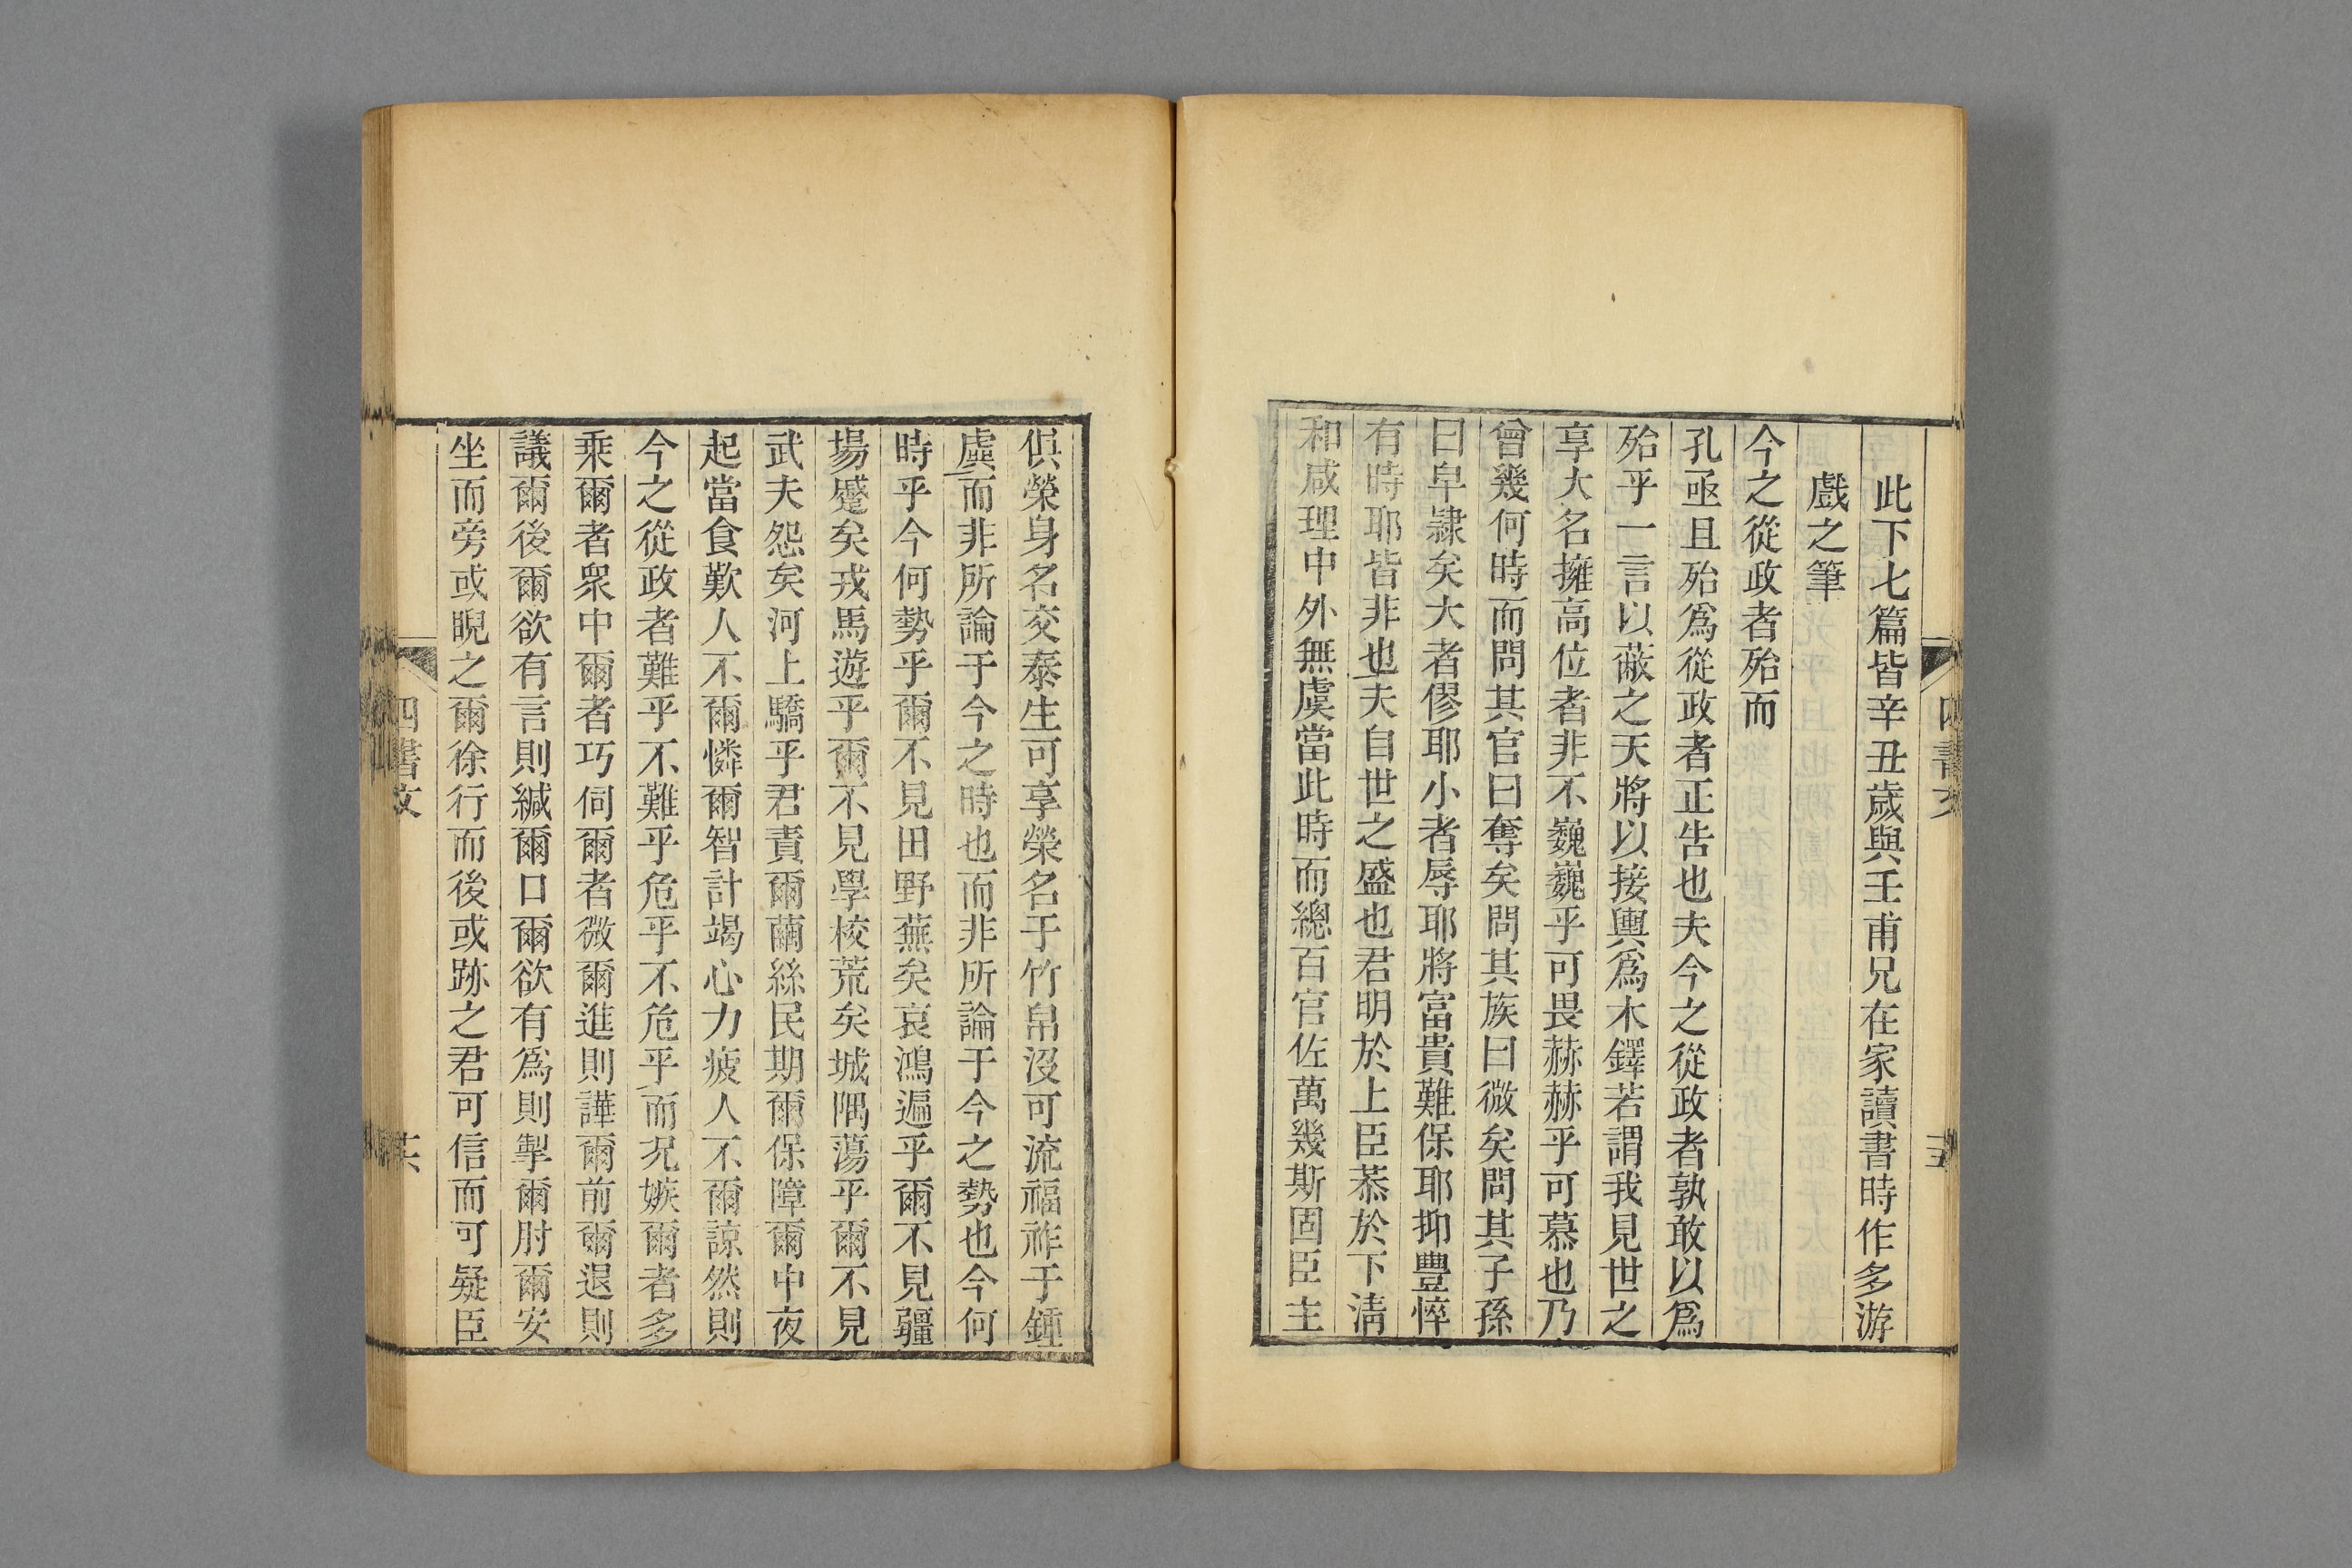 此下七篇皆辛丑歲與壬甫兄在家讀書時作多游
戲之筆
今之從政者殆而
孔亟且殆爲從政者正告也夫今之從政者孰敢以爲
殆乎一言以蔽之天將以接輿爲木鐸若謂我見世之
享大名擁高位者非不巍巍乎可畏赫赫乎可慕也乃
曾幾何時而問其官曰奪矣問其族曰微矣問其子孫
曰皁隷矣大者僇耶小者辱耶將富貴難保耶抑豐悴
有時耶皆非也夫自世之盛也君明於上臣恭於下淸
和咸理中外無虞當此時而總百官佐萬幾斯固臣主
俱榮身名交泰生可享榮名于竹帛沒可流福祚于鍾
虡而非所論于今之時也而非所論于今之勢也今何
時乎今何勢乎爾不見田野蕪矣哀鴻遍乎爾不見疆
場蹙矣戎馬遊乎爾不見學校荒矣城隅蕩乎爾不見
武夫怨矣河上驕乎君責爾繭絲民期爾保障爾中夜
起當食歎人不爾憐爾智計竭心力疲人不爾諒然則
今之從政者難乎不難乎危乎不危乎而况嫉爾者多
乘爾者衆中爾者巧伺爾者微爾進則譁爾前爾退則
議爾後爾欲有言則緘爾口爾欲有爲則掣爾肘爾安
坐而旁或睨之爾徐行而後或跡之君可信而可疑臣
四書文